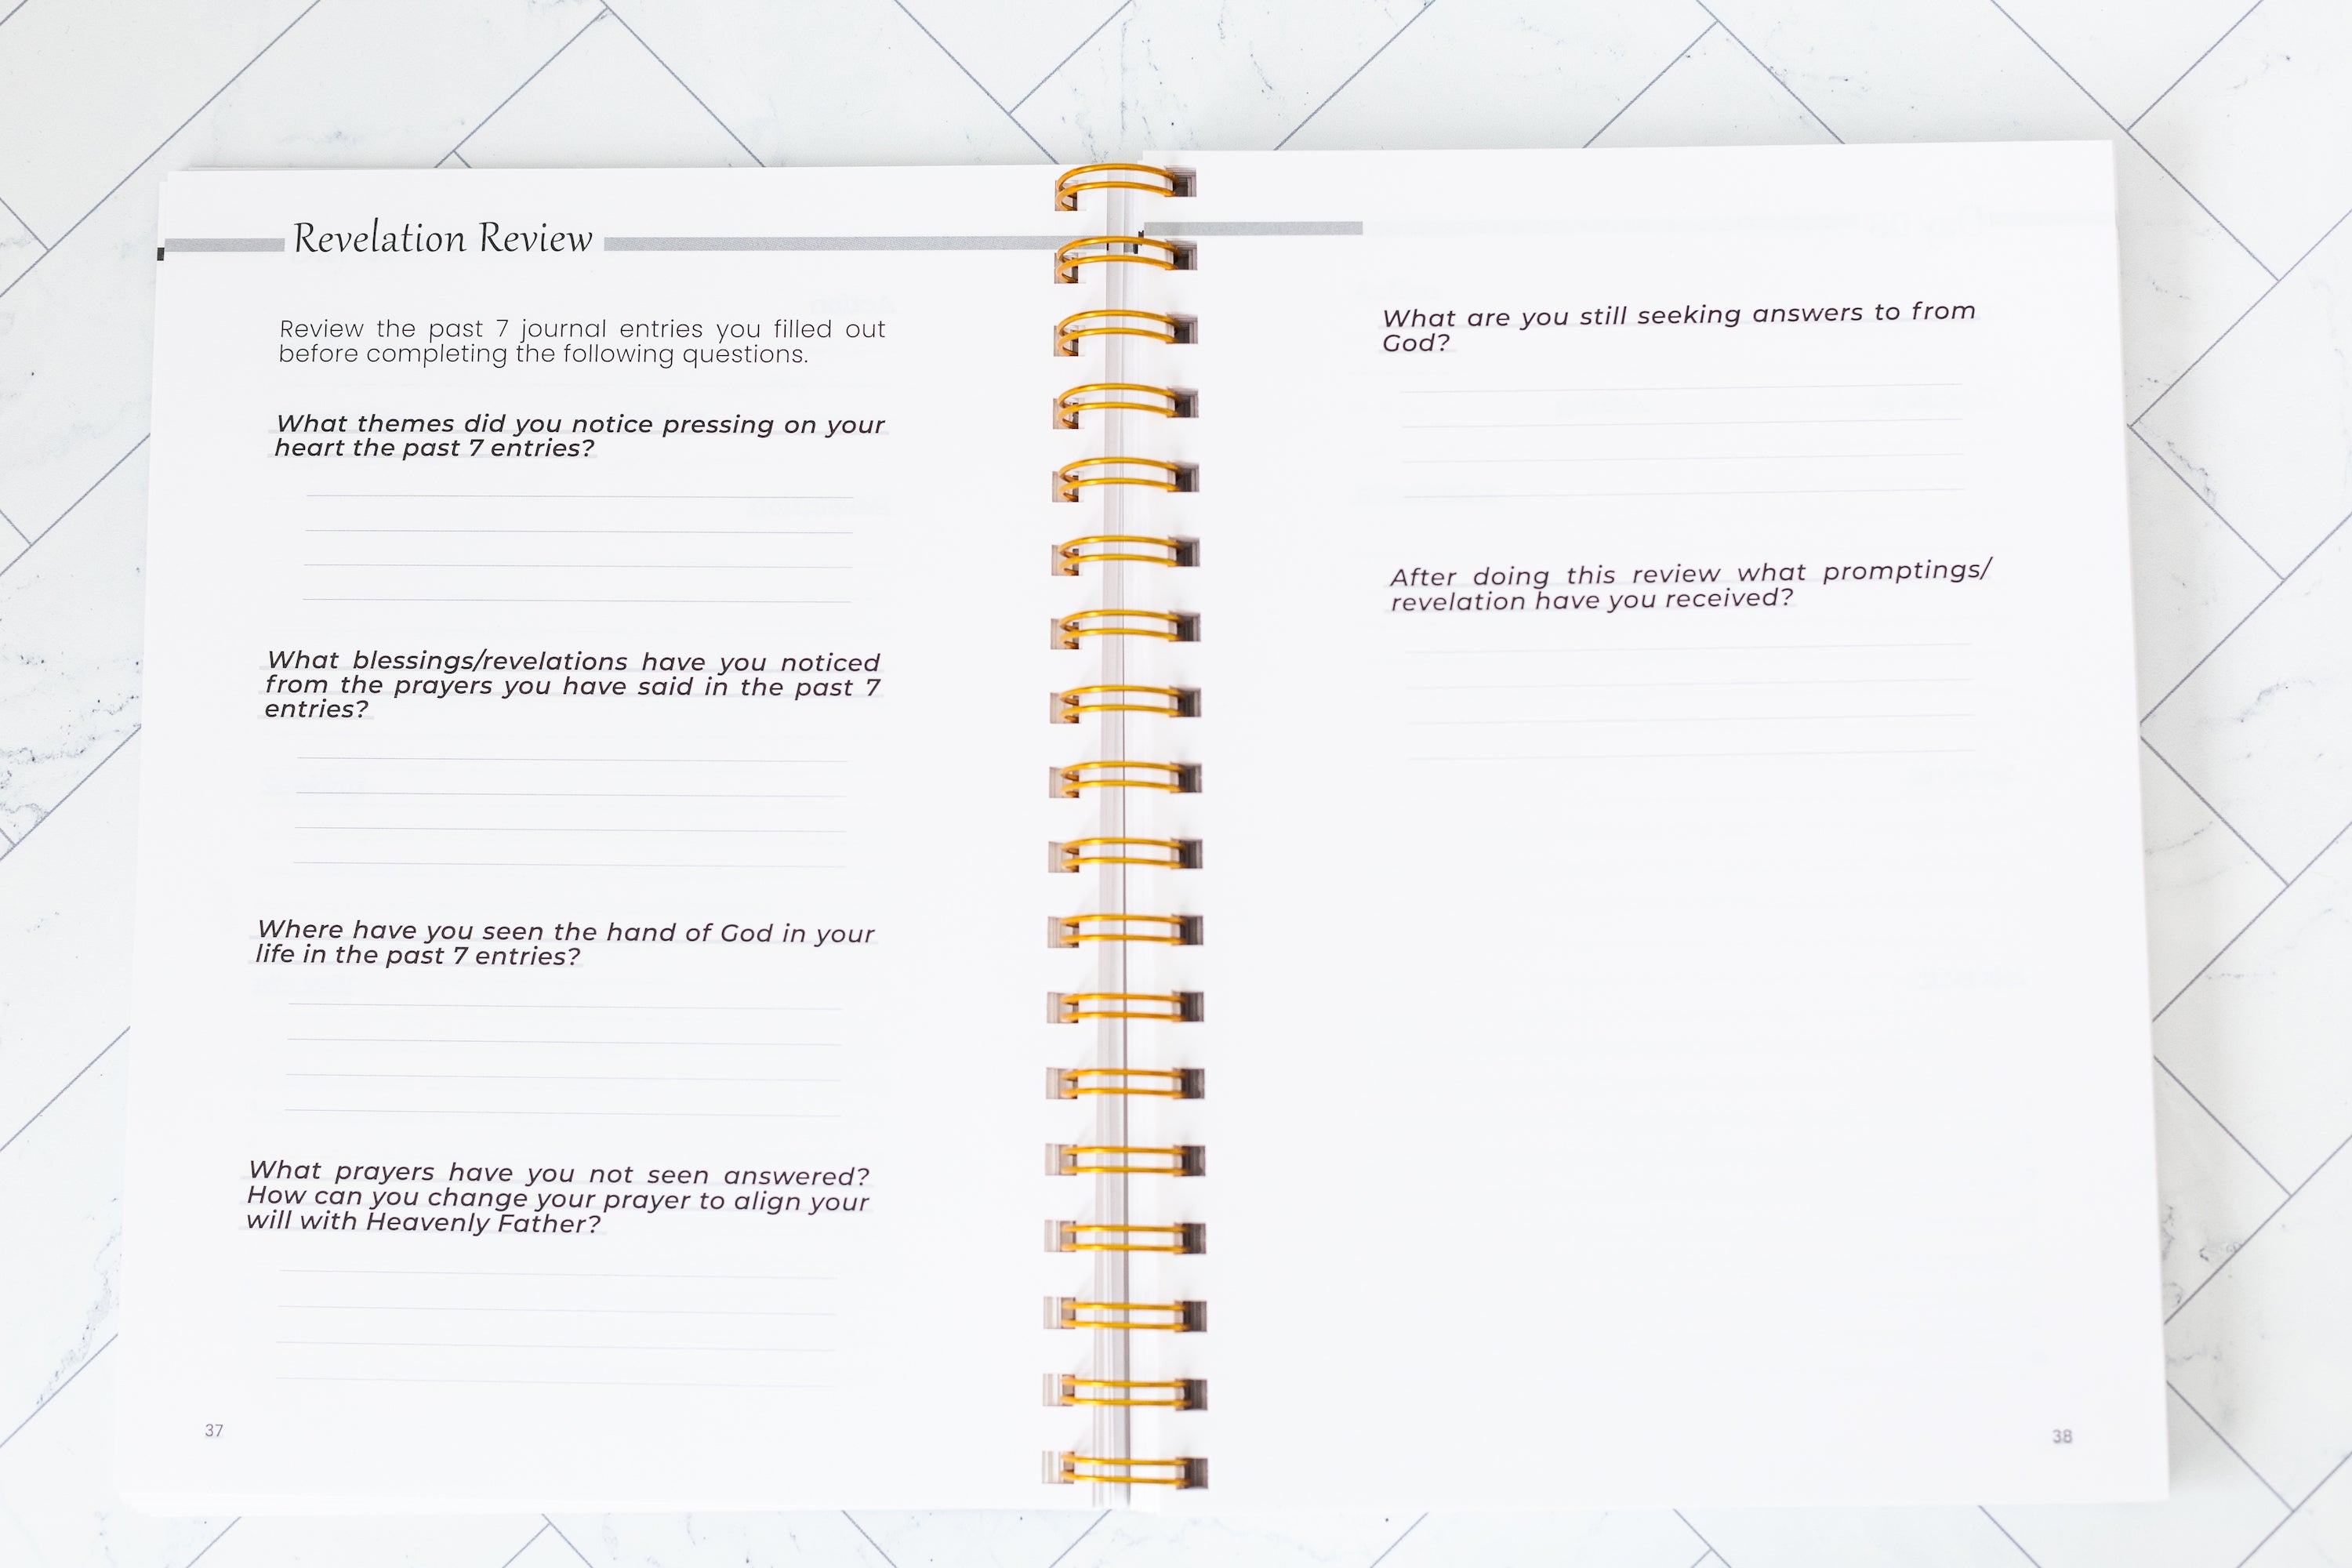 Revelation Review
Review the past 7 journal entries you filled out
before completing the following questions.
What themes did you notice pressing on your
heart the past 7 entries?
What blessings/revelations have you noticed
from the prayers you have said in the past 7
entries?
Where have you seen the hand of God in your
life in the past 7 entries?
What prayers have you not seen answered?
How can you change your prayer to align your
will with Heavenly Father?
37
What are you still seeking answers to from
God?
After doing this review what promptings/
revelation have you received?
38